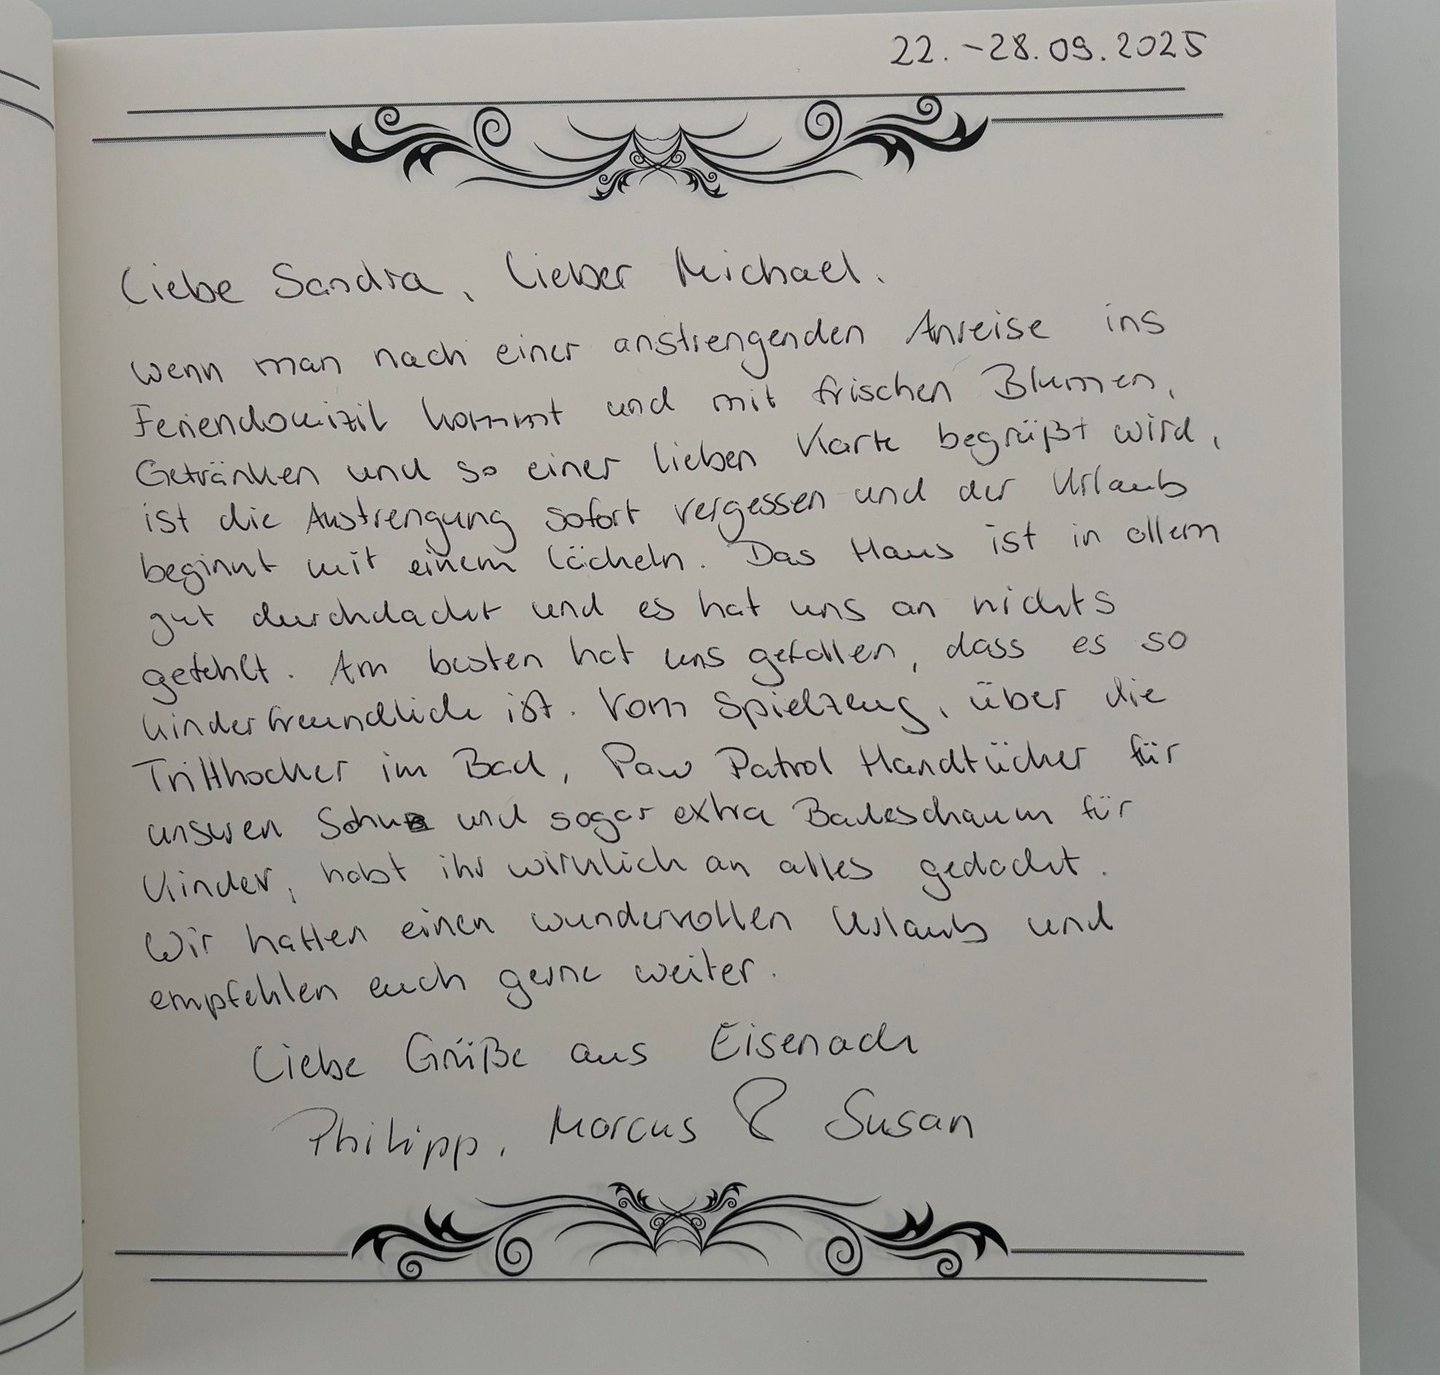 22.-28.09.2025
Liebe Sandra, lieber Michael.
wenn man nach einer anstrengenden Anreise ins
Feriendomizil kommt und mit frischen Blumen,
Getränken und so einer lieben Karte begrüßt wird,
ist die Anstrengung sofort vergessen und der Urlaub
beginnt mit einem Lächeln. Das Haus ist in allem
gut durchdacht und es hat uns an nichts
gefehlt. Am besten hat uns gefallen, dass es so
kinderfreundlich ist. Vom Spielzeug, über die
Tritthocker im Bad, Paw Patrol Handtücher für
unseren und sogar extra Badeschaum für
Kinder, habt ihr wirklich an alles gedacht.
Wir hatten einen wundervollen Urlaub und
empfehlen euch gerne weiter.
Liebe Grüße aus Eisenach
Philipp, Marcus & Susan